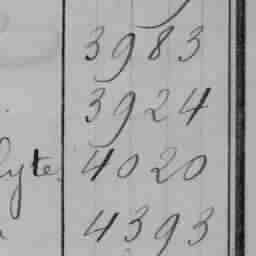 3983
3924
4020
4393